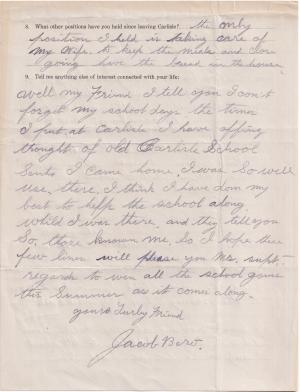 8. What other positions have you held since leaving Carlisle? the only
position I held is taking care of
my Wife. to keep the meals and
going have the bread in the house.
9. Tell me anything else of interest connected with your life:
Well my Friend I tell you I don't
forget my school days the time
I put at Carlisle I have
thought of old Carlisle School
I came home. I was So well
use there, I think I have don my
best to the school along
I was there. and they tell you
So, those me, So I hope these
few lines will please you Mr. supt-
regards to win all the school game
this Summer as it come along.
yours Friend
Jacob